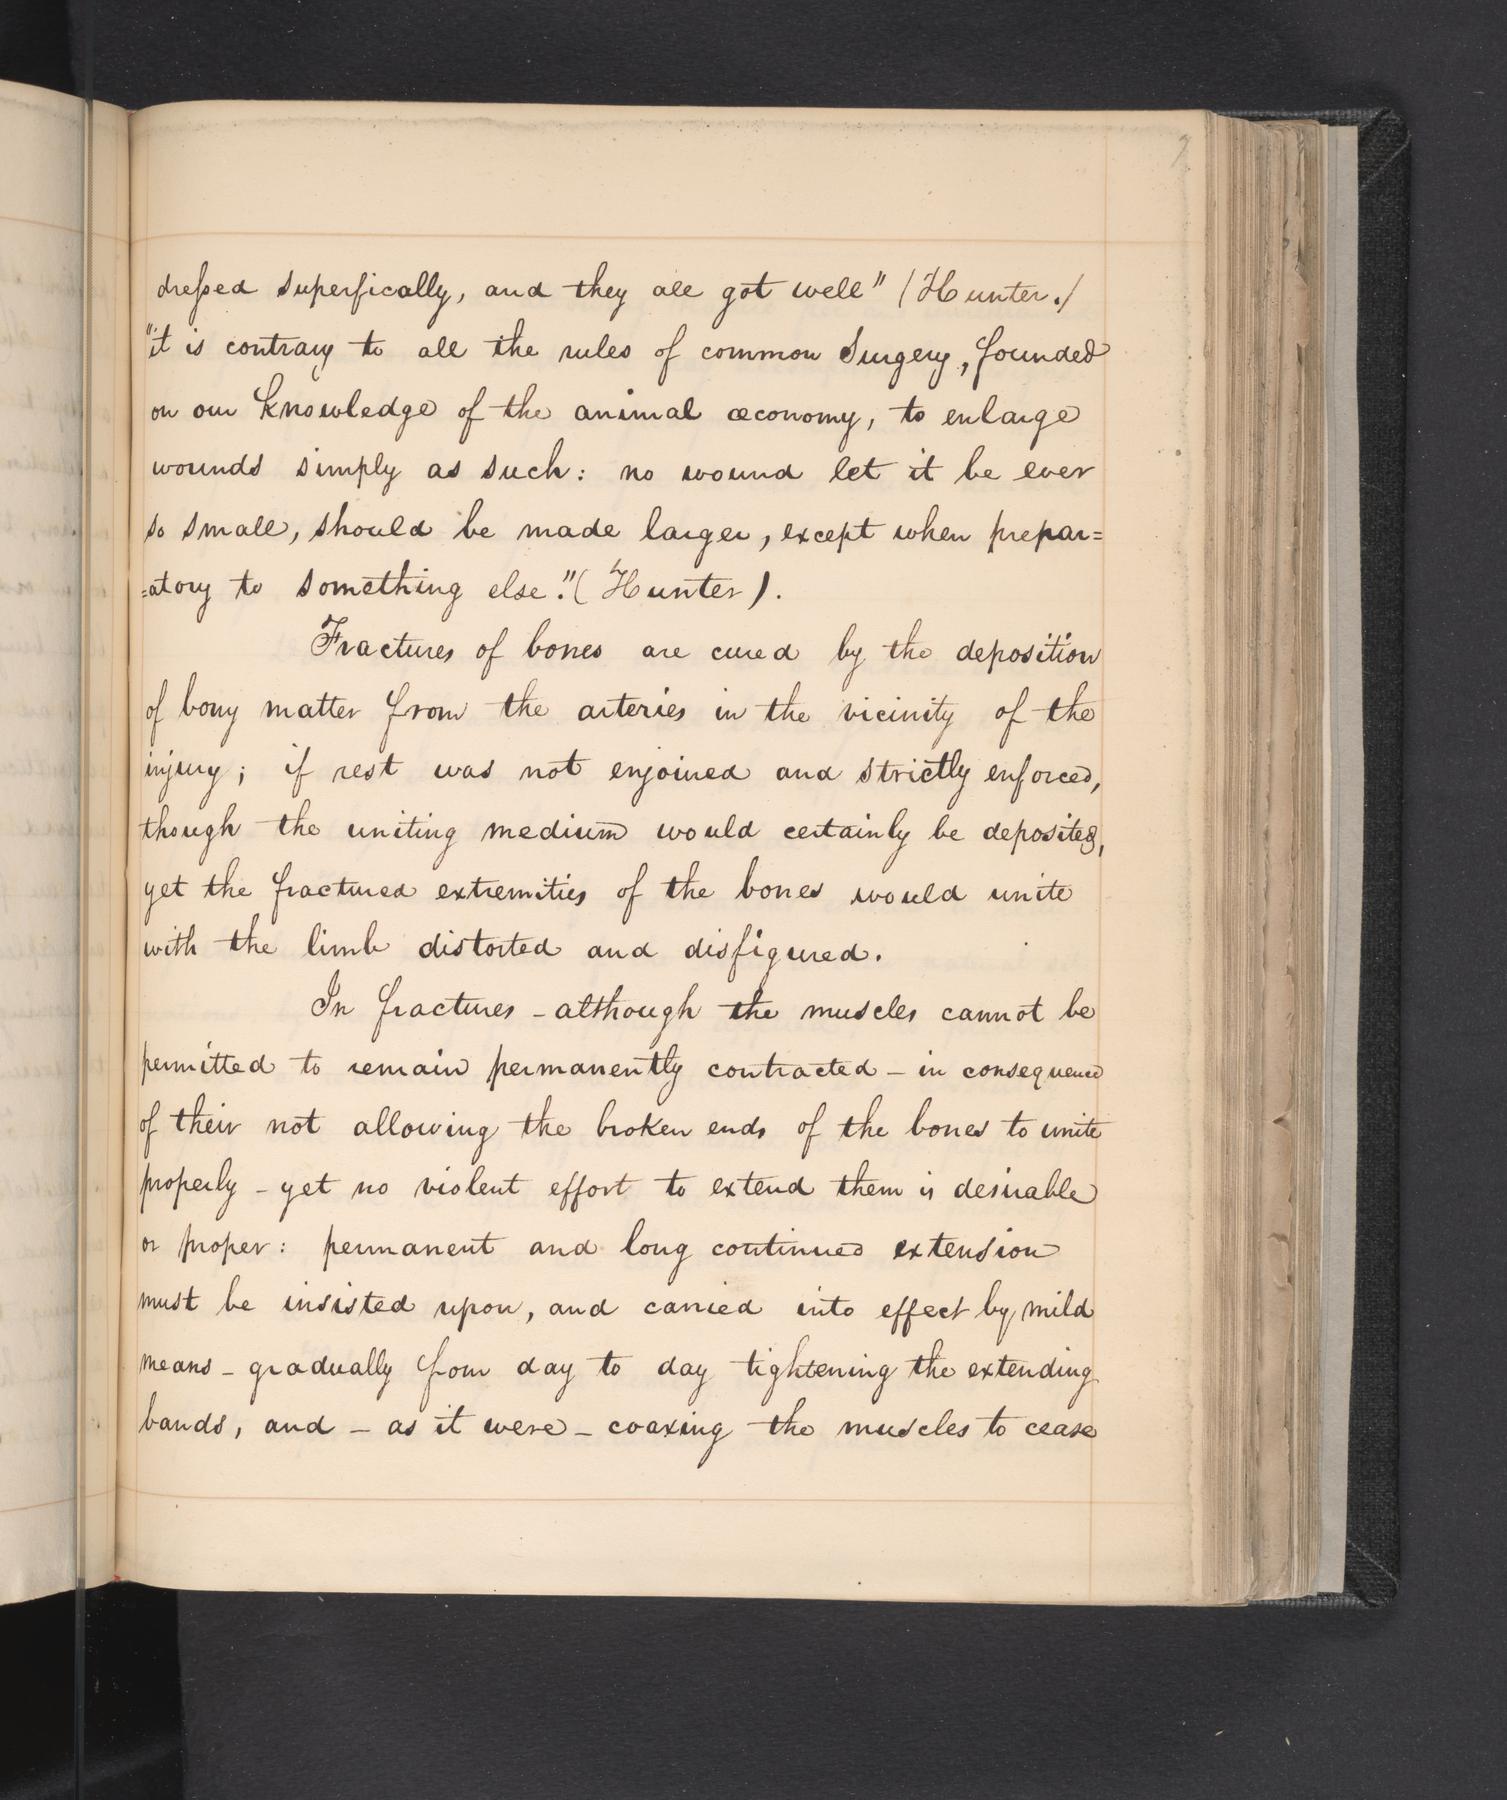 7
dreſsed superfically, and they all got well" (Hunter.)
"it is contrary to all the rules of common Surgery, founded
on our knowledge of the animal œconomy, to enlarge
wounds simply as such: no wound let it be ever
so small, should be made larger, except when prepar=
=atory to something else." (Hunter).
Fractures of bones are cured by the deposition
of bony matter from the arteries in the vicinity of the
injury; if rest was not enjoined and strictly enforced,
though the uniting medium would certainly be deposited,
yet the fractured extremities of the bones would unite
with the limb distorted and disfigured.
In fractures - although the muscles cannot be
permitted to remain permanently contracted - in consequence
of their not allowing the broken ends of the bones to unite
properly - yet no violent effort to extend them is desirable
or proper: permanent and long continued extension
must be insisted upon, and carried into effect by mild
means - gradually from day to day tightening the extending
bands, and - as it were - coaxing the muscles to cease